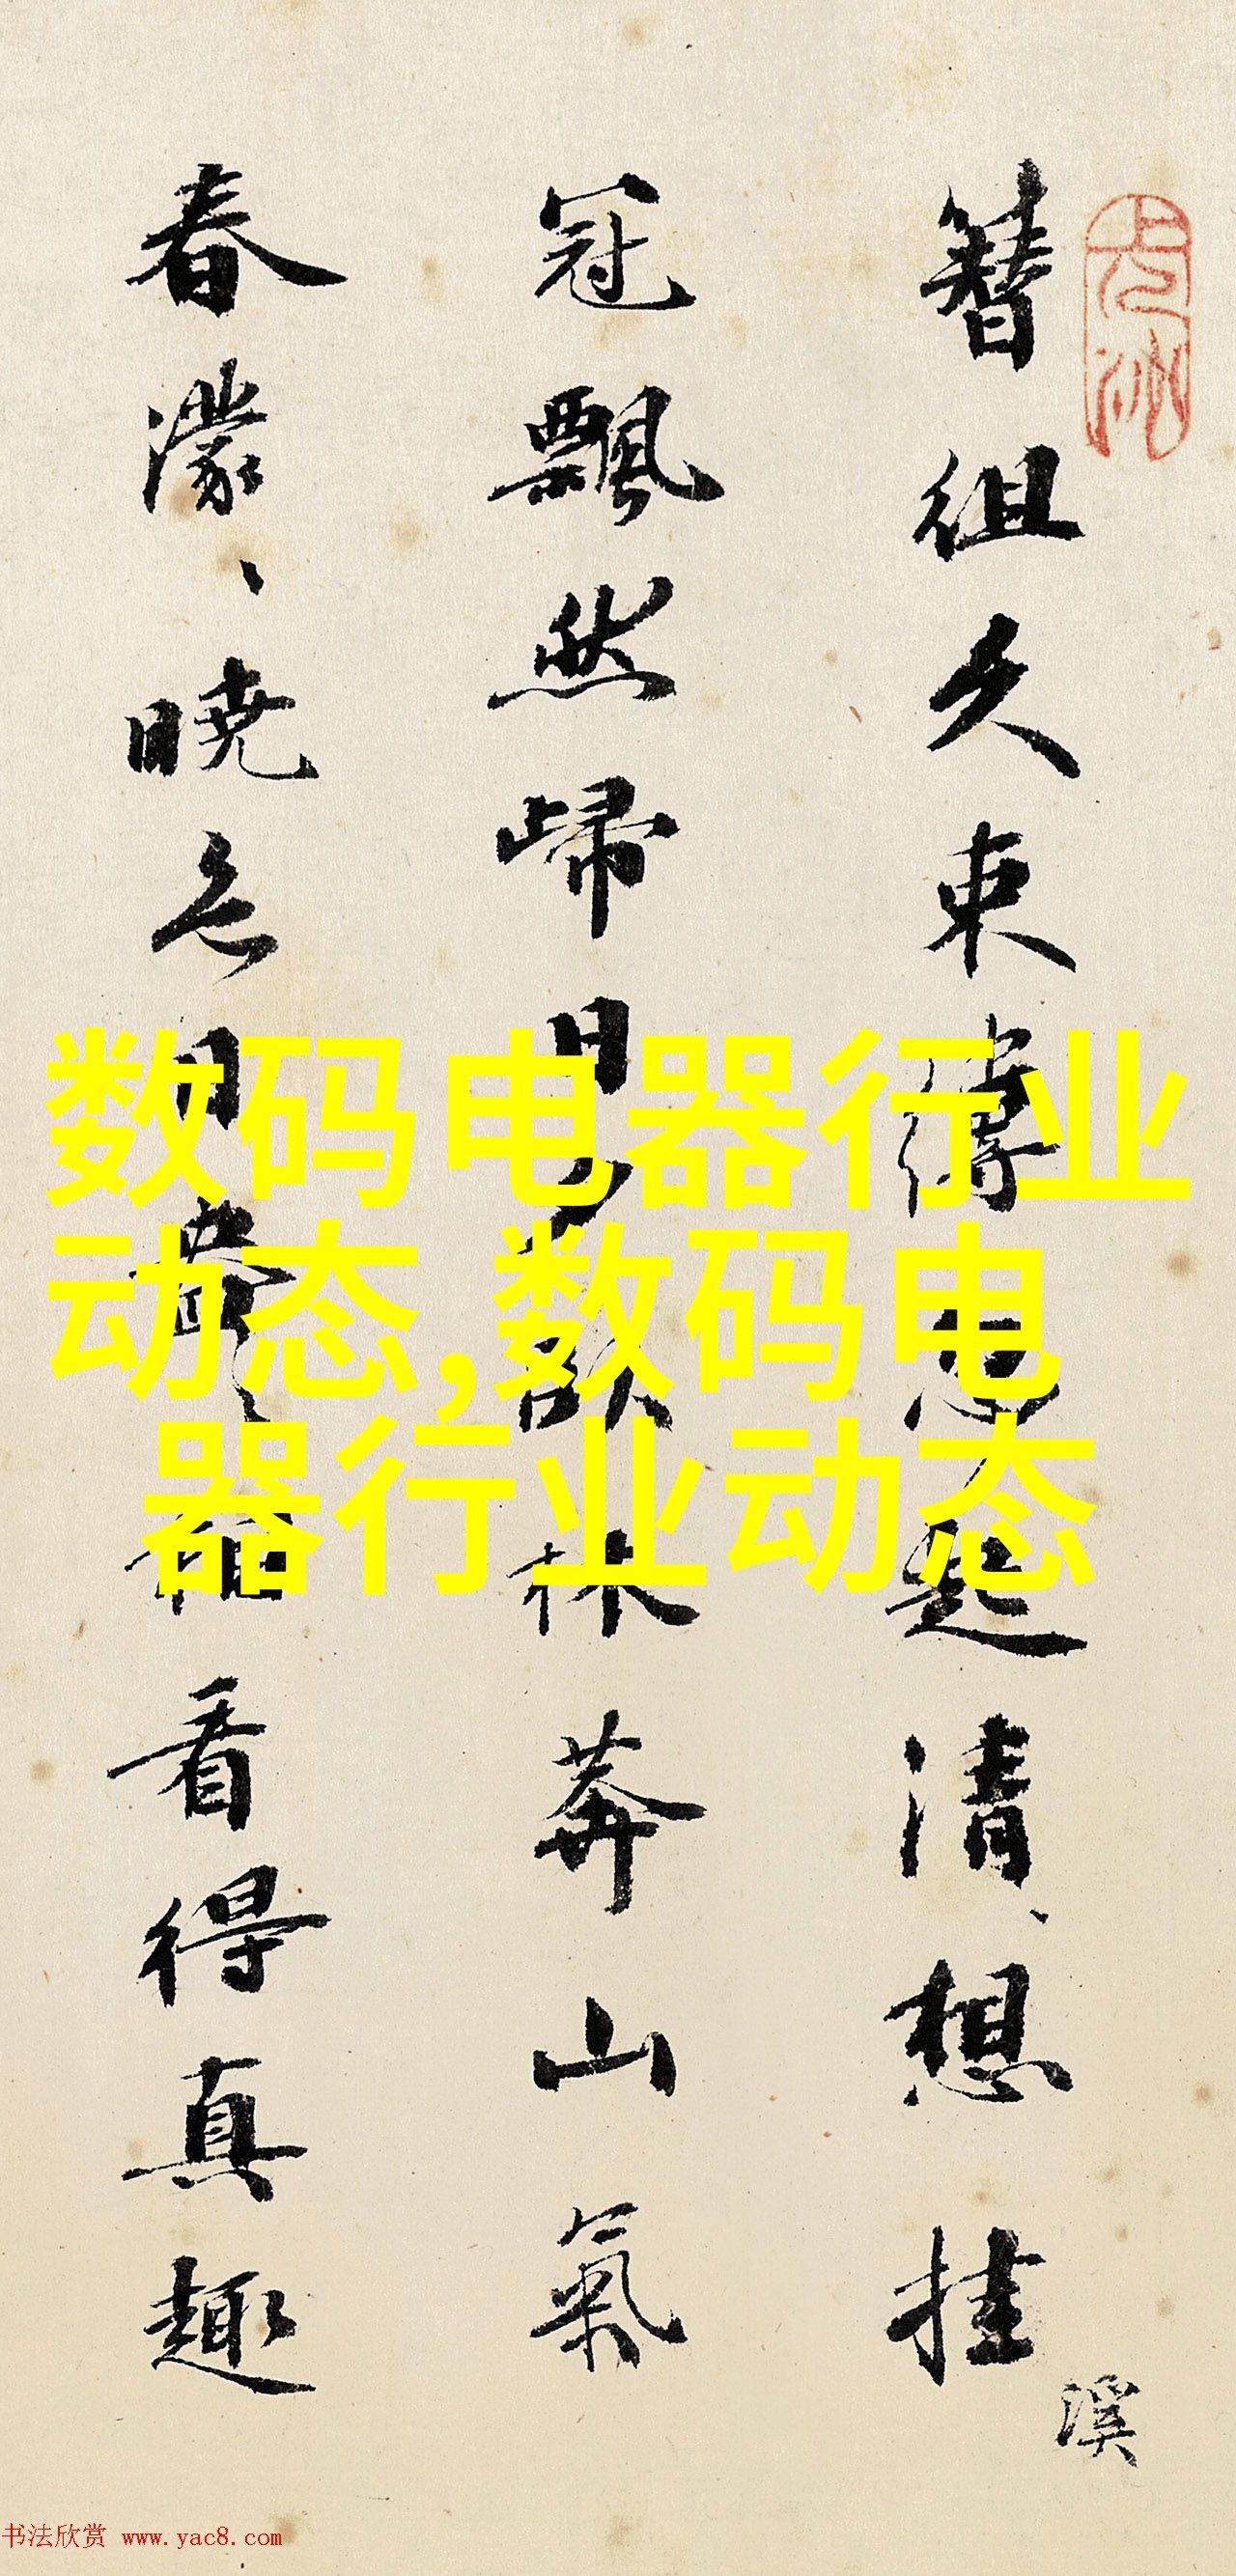 簪组久束缚忽起清、想挂
冠飘然歸日夕歌林莽山氣
春濛、晓色日
看得真趣
溪
数码电器行业
动态,数码电
器行业动态
书法欣赏 www.yac8.com